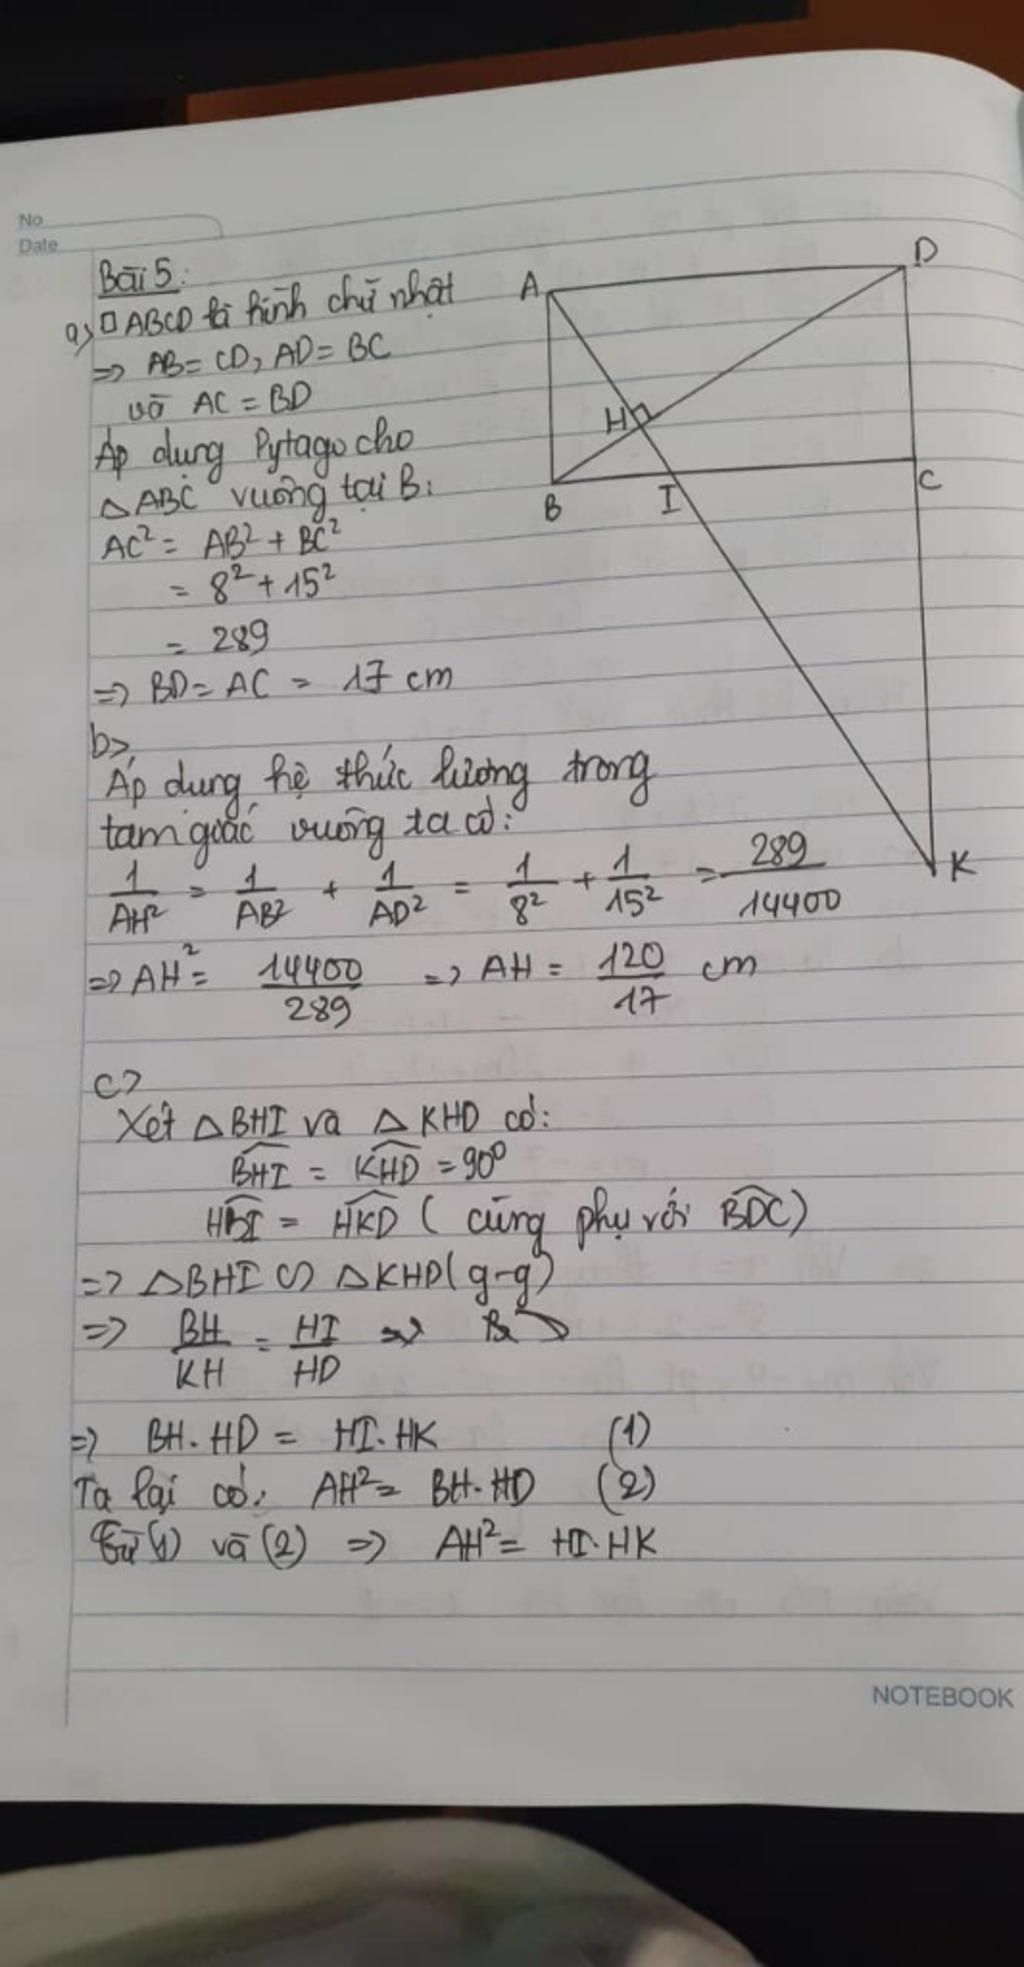 No
Date
Bài 5:
a) □ABCD là hình chữ nhật
=> AB = CD, AD = BC
và AC = BD
Áp dụng Pytago cho
△ABC vuông tại B:
AC² = AB² + BC²
= 8² + 15²
= 289
=> BD = AC = 17 cm
A
D
H
B
I
C
K
b>
Áp dụng hệ thức lượng trong
tam giác vuông ta có:
1/AH² = 1/AB² + 1/AD² = 1/8² + 1/15² = 289/14400
=> AH² = 14400/289 => AH = 120/17 cm
c>
Xét △BHI và △KHD có:
BHI = KHD = 90⁰
HBI = HKD ( cùng phụ với BDC)
=> △BHI ∽ △KHD (g-g)
=> BH/KH = HI/HD
=> BH.HD = HI.HK (1)
Ta lại có: AH² = BH.HD (2)
Từ (1) và (2) => AH² = HI.HK
NOTEBOOK